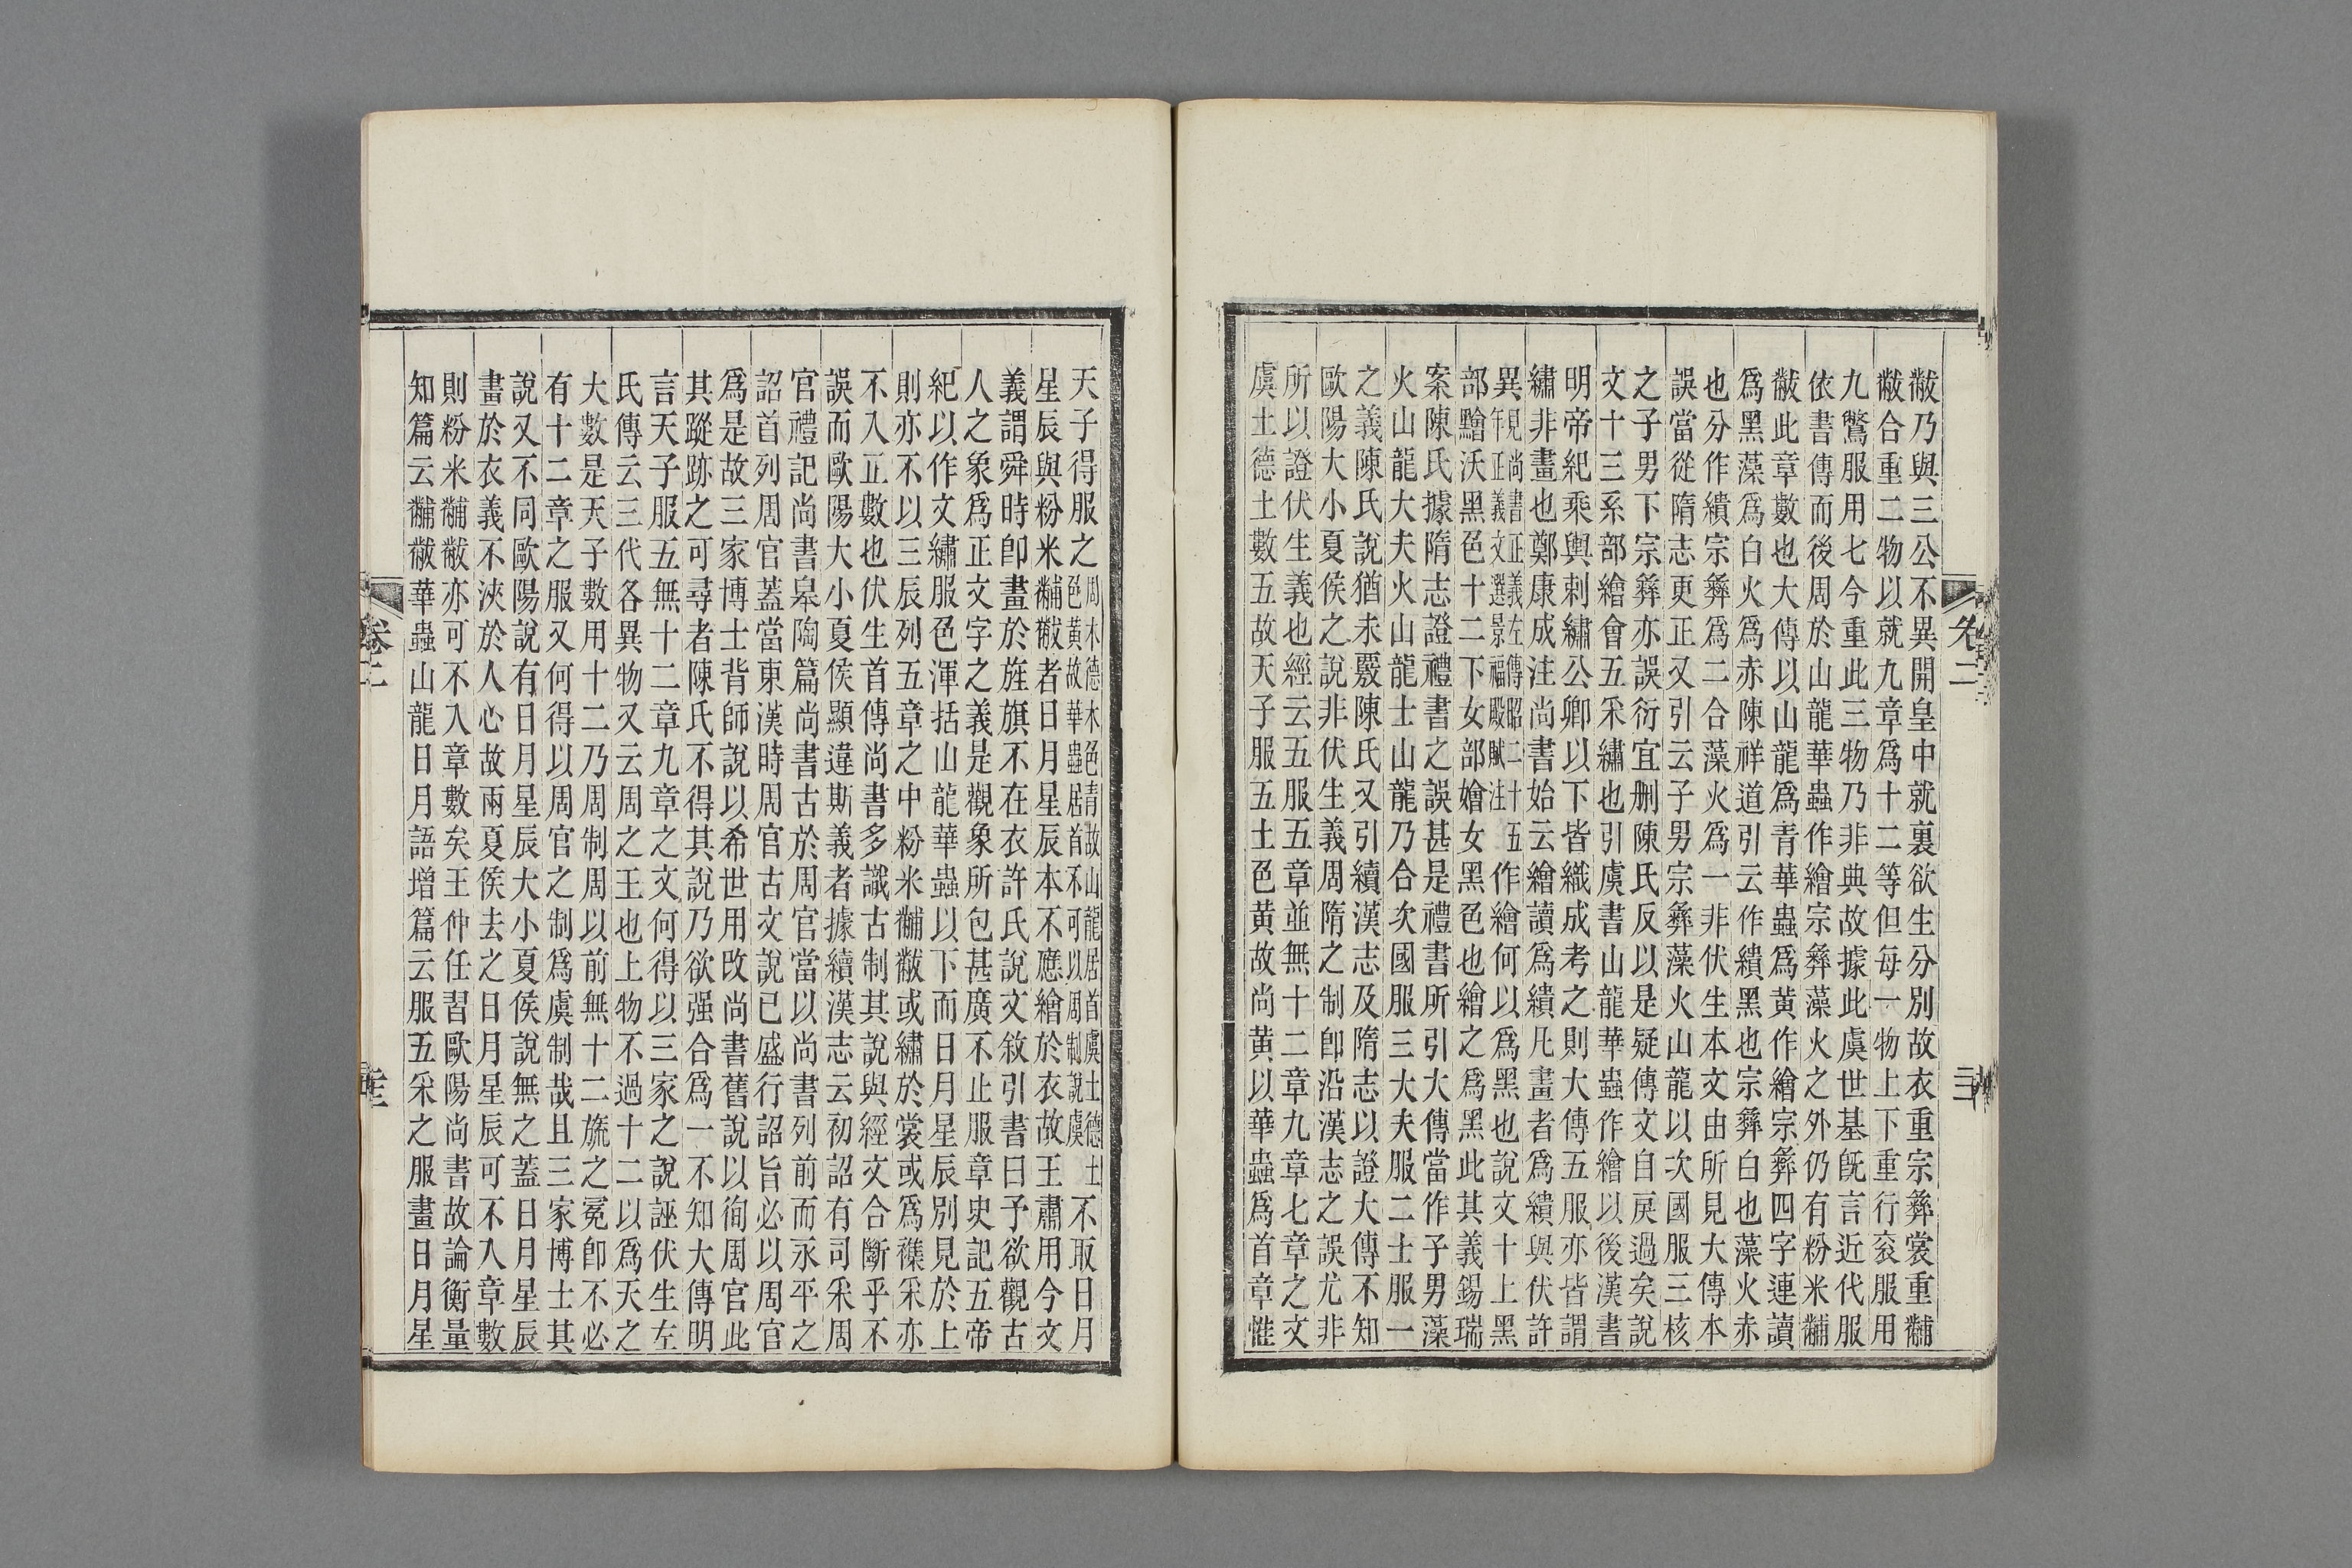 黻乃與三公不異開皇中就裏欲生分別故衣重宗彝裳重黼
黻合重二物以就九章爲十二等但每一物上下重行衮服用
九鷩服用七今重此三物乃非典故據此虞世基旣言近代服
依書傳而後周於山龍華蟲作繪宗彝藻火之外仍有粉米黼
黻此章數也大傳以山龍爲青華蟲爲黃作繪宗彝四字連讀
爲黑藻爲白火爲赤陳祥道引云作繢黑也宗彝白也藻火赤
也分作繢宗彝爲二合藻火爲一非伏生本文由所見大傳本
誤當從隋志更正又引云子男宗彝藻火山龍以次國服三核
之子男下宗彝亦誤衍宜刪陳氏反以是疑傳文自戾過矣說
文十三系部繪會五采繡也引虞書山龍華蟲作繪以後漢書
明帝紀乘輿刺繡公卿以下皆織成考之則大傳五服亦皆謂
繡非畫也鄭康成注尚書始云繪讀爲繢凡畫者爲繢與伏許
異見尚書正義左傳昭二十五年正義文選景福殿賦注作繪何以爲黑也說文十上黑
部黵沃黑色十二下女部嬒女黑色也繪之爲黑此其義錫瑞
案陳氏據隋志證禮書之誤甚是禮書所引大傳當作子男藻
火山龍大夫火山龍士山龍乃合次國服三大夫服二士服一
之義陳氏說猶未覈陳氏又引續漢志及隋志以證大傳不知
歐陽大小夏侯之說非伏生義周隋之制卽沿漢志之誤尤非
所以證伏生義也經云五服五章並無十二章九章七章之文
虞土德土數五故天子服五土色黃故尚黃以華蟲爲首章惟
卷二
三
天子得服之周木德木色青故山龍居首虞土德土色黃故華蟲居首不可以周制說虞不取日月
星辰與粉米黼黻者日月星辰本不應繪於衣故王肅用今文
義謂舜時卽畫於旌旗不在衣許氏說文敘引書曰予欲觀古
人之象爲正文字之義是觀象所包甚廣不止服章史記五帝
紀以作文繡服色渾括山龍華蟲以下而日月星辰別見於上
則亦不以三辰列五章之中粉米黼黻或繡於裳或爲襍采亦
不入正數也伏生首傳尚書多識古制其說與經文合斷乎不
誤而歐陽大小夏侯顯違斯義者據續漢志云初詔有司采周
官禮記尚書皋陶篇尚書古於周官當以尚書列前而永平之
詔首列周官蓋當東漢時周官古文說已盛行詔旨必以周官
爲是故三家博士背師說以希世用改尚書舊說以徇周官此
其蹤跡之可尋者陳氏不得其說乃欲强合爲一不知大傳明
言天子服五無十二章九章之文何得以三家之說誣伏生左
氏傳云三代各異物又云周之王也上物不過十二以爲天之
大數是天子數用十二乃周制周以前無十二旒之冕卽不必
有十二章之服又何得以周官之制爲虞制哉且三家博士其
說又不同歐陽說有日月星辰大小夏侯說無之蓋日月星辰
畫於衣義不浹於人心故兩夏侯去之日月星辰可不入章數
則粉米黼黻亦可不入章數矣王仲任習歐陽尚書故論衡量
知篇云黼黻華蟲山龍日月語增篇云服五采之服畫日月星